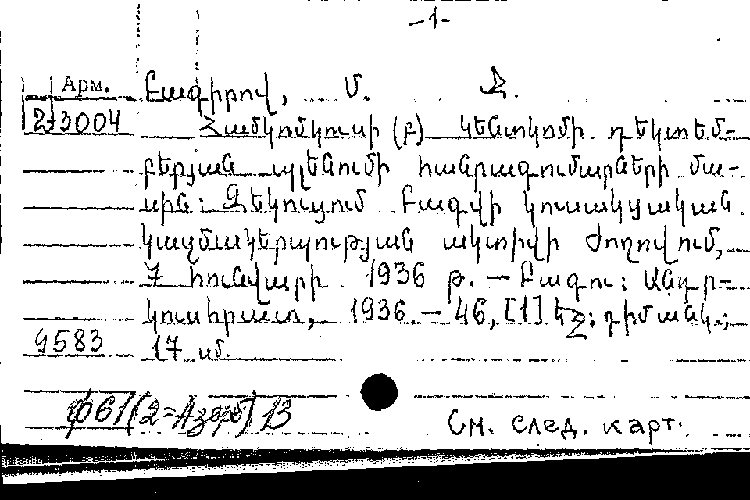 -1-
Арм. Բագիրով, Մ. Ջ.
2-3004 Համկոմկուսի (բ) Կենտկոմի դեկտեմ-
բերյան պլենումի հանրագումարների մա-
սին: Զեկուցում Բագվի կուսակցական
կազմակերպության ակտիվի ժողովում,
7 հունվարի 1936 թ. — Բագու: Ադր-
կուսհրատ, 1936. — 46, [1] եջ: դիմանկ.;
9583 17 սմ.
ф61(2=Азерб) В
См. след. карт.